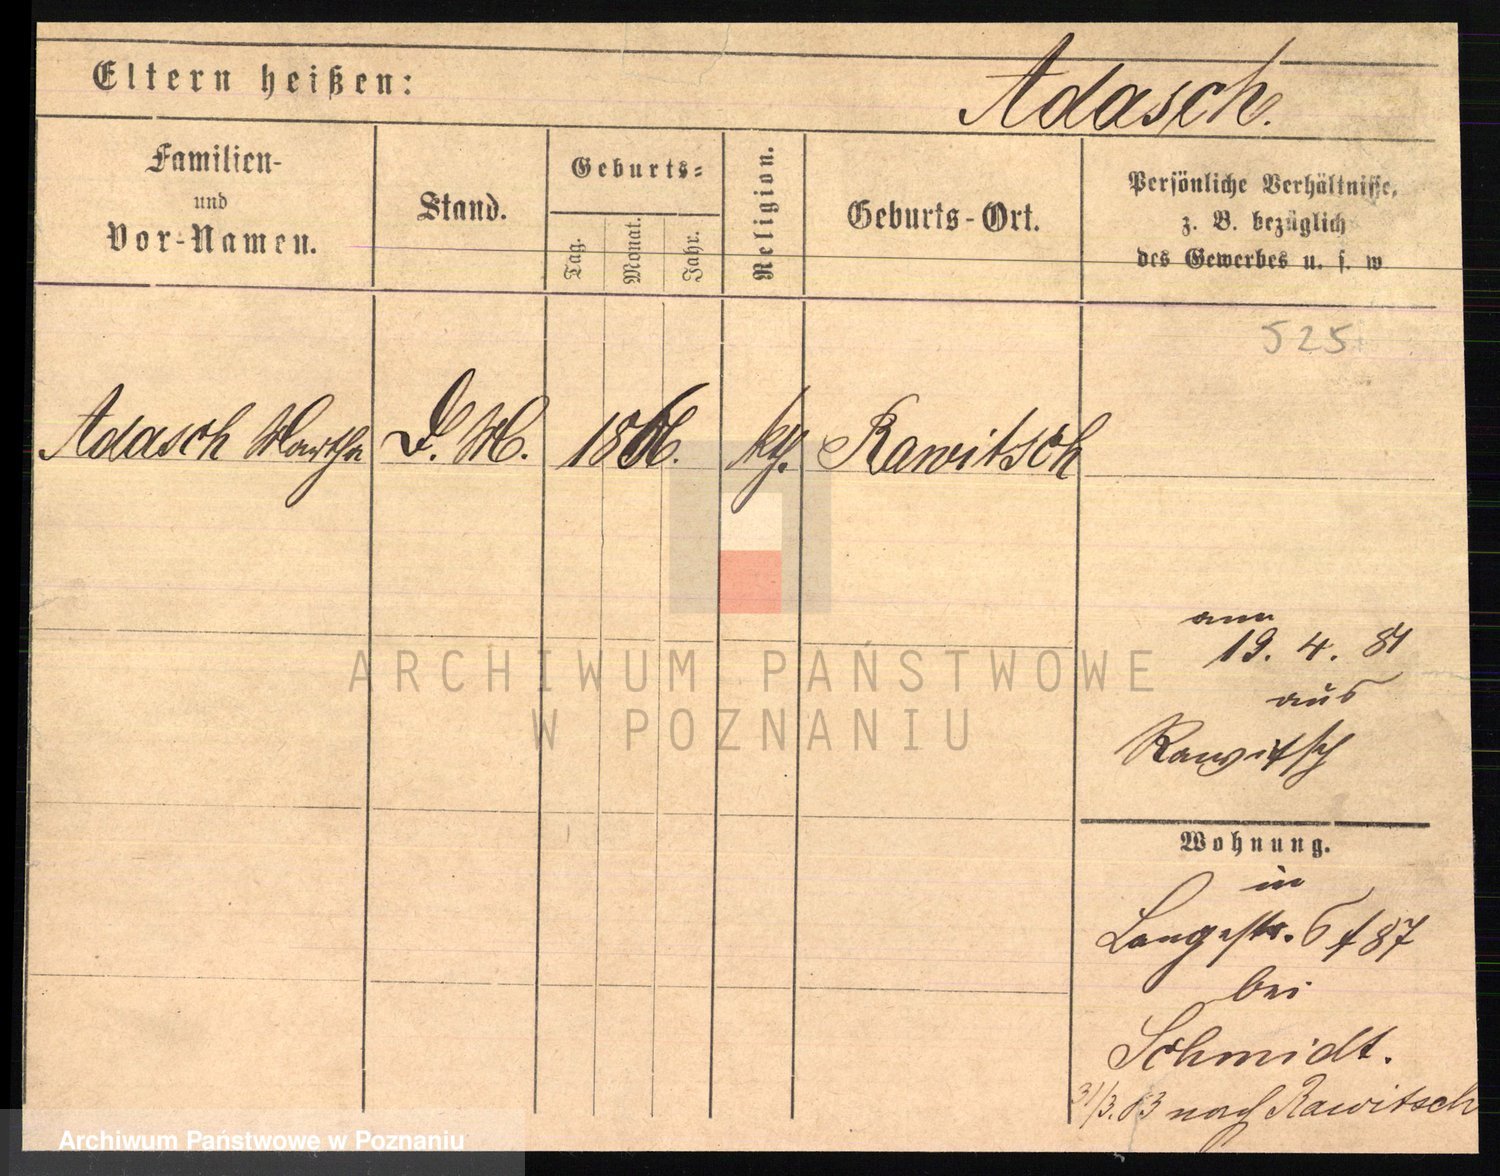 Eltern heißen:
Adasch.
Familien-
und
Vor-Namen.
Stand.
Geburts-
Tag.
Monat.
Jahr.
Religion.
Geburts-Ort.
Persönliche Verhältnisse,
z. B. bezüglich
des Gewerbes u. s. w
525
Adasch Martha D. M. 1866. kth. Rawitsch
am
19. 4. 81
aus
Rawitsch
ARCHIWUM PAŃSTWOWE
W POZNANIU
Wohnung.
in
Langestr. 6
bei
Schmidt.
31/3. 83 nach Rawitsch
Archiwum Państwowe w Poznaniu